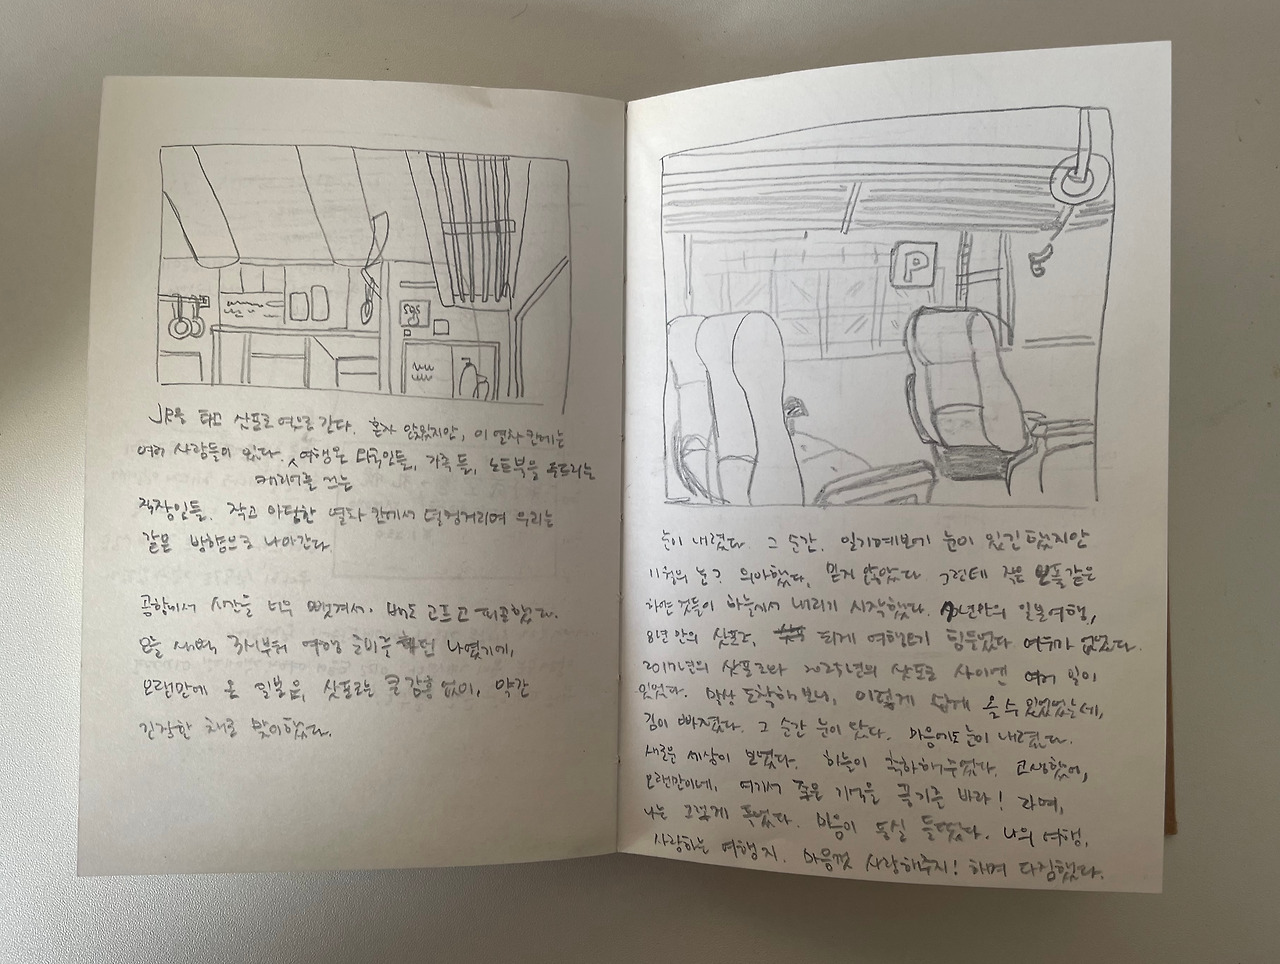 SOS
JR을 타고 삿포로역으로 간다. 혼자 앉았지만, 이 열차 칸에는
여러 사람들이 있다. 여행온 외국인들, 가족들, 노트북을 두드리는
캐리어를 쓰는
직장인들. 작고 아담한 열차 칸에서 덜컹거리며 우리는
같은 방향으로 나아간다.
공항에서 시간을 너무 뺏겨서. 배도 고프고 피곤했다.
오늘 새벽 3시부터 여행 준비 나였기에,
오랜만에 온 일본은, 삿포로는 큰 감흥 없이, 약간
긴장한 채로 맞이했다.
P
눈이 내렸다. 그 순간. 일기예보에 눈이 있긴 했지만
11월의 눈? 의아했다, 믿지 않았다. 그런데 작은 보풀같은
하얀 것들이 하늘에서 내리기 시작했다. 년만의 일본여행,
8년 만의 삿포로, 되게 여행오기 힘들었다 여유가 없었다.
2017년의 삿포로와 2025년의 삿포로 사이엔 여러 일이
있었다. 막상 도착해보니, 이렇게 쉽게 올 수 있었는데,
김이 빠졌다. 그 순간 눈이 왔다. 마음에도 눈이 내렸다.
새로운 세상이 보였다. 하늘이 축하해주었다. 고생했어,
오랜만이네, 여기서 좋은 기억을 바라! 라며,
나는 그렇게 들떴다. 나의 여행,
사랑하는 여행지. 마음껏 사랑해주지! 하며 다짐했다.